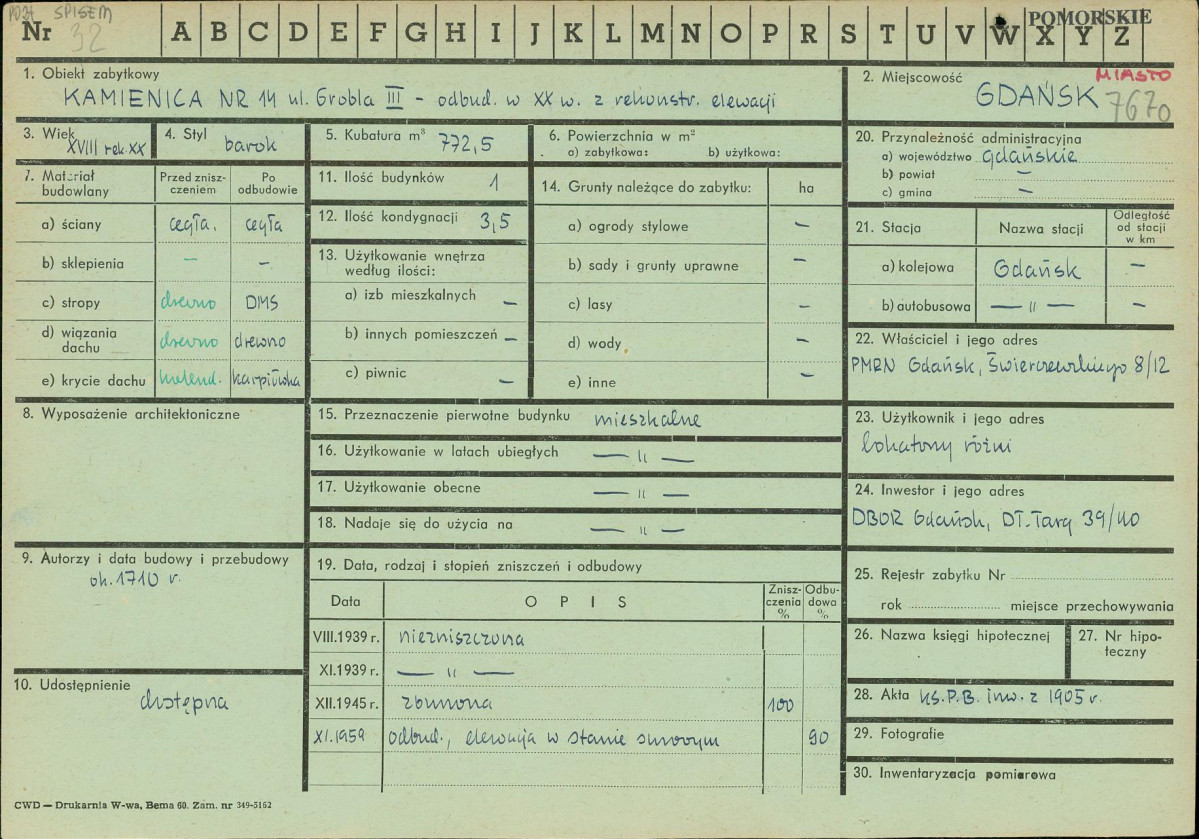 POZA SPISEM
POMORSKIE
Nr 32 A B C D E F G H I J K L M N O P R S T U V W X Y Z
1. Obiekt zabytkowy
KAMIENICA NR 14 ul. Grobla III - odbud. w XX w. z rekonstr. elewacji
2. Miejscowość
MIASTO
GDAŃSK 7670
3. Wiek
XVIII rek. XX
4. Styl
barok
5. Kubatura m³
772,5
6. Powierzchnia w m²
a) zabytkowa: b) użytkowa:
7. Materiał budowlany
Przed znisz-
czeniem
Po
odbudowie
a) ściany cegła. cegła
b) sklepienia — —
c) stropy drewno DMS
d) wiązania
dachu drewno drewno
e) krycie dachu holend. karpiówka
8. Wyposażenie architektoniczne
9. Autorzy i data budowy i przebudowy
ok. 1710 r.
10. Udostępnienie
dostępna
11. Ilość budynków 1
12. Ilość kondygnacji 3,5
13. Użytkowanie wnętrza
według ilości:
a) izb mieszkalnych —
b) innych pomieszczeń —
c) piwnic —
14. Grunty należące do zabytku: ha
a) ogrody stylowe —
b) sady i grunty uprawne —
c) lasy —
d) wody —
e) inne —
15. Przeznaczenie pierwotne budynku mieszkalne
16. Użytkowanie w latach ubiegłych — " —
17. Użytkowanie obecne — " —
18. Nadaje się do użycia na — " —
19. Data, rodzaj i stopień zniszczeń i odbudowy
Data OPIS
Znisz-
czenia
%
Odbu-
dowa
%
VIII.1939 r. niezniszczona
XI.1939 r. — " —
XII.1945 r. zburzona 100
XI.1959 odbud., elewacja w stanie surowym 90
20. Przynależność administracyjna
a) województwo gdańskie
b) powiat —
c) gmina —
21. Stacja Nazwa stacji
Odległość
od stacji
w km
a) kolejowa Gdańsk —
b) autobusowa — " — —
22. Właściciel i jego adres
PMRN Gdańsk, Świerczewskiego 8/12
23. Użytkownik i jego adres
lokatorzy różni
24. Inwestor i jego adres
DBOR Gdańsk, DT. Targ 39/40
25. Rejestr zabytku Nr
rok miejsce przechowywania
26. Nazwa księgi hipotecznej
27. Nr hipo-
teczny
28. Akta ks. P.B. inw. z 1905 r.
29. Fotografie
30. Inwentaryzacja pomiarowa
CWD — Drukarnia W-wa, Bema 60. Zam. nr 349-5162